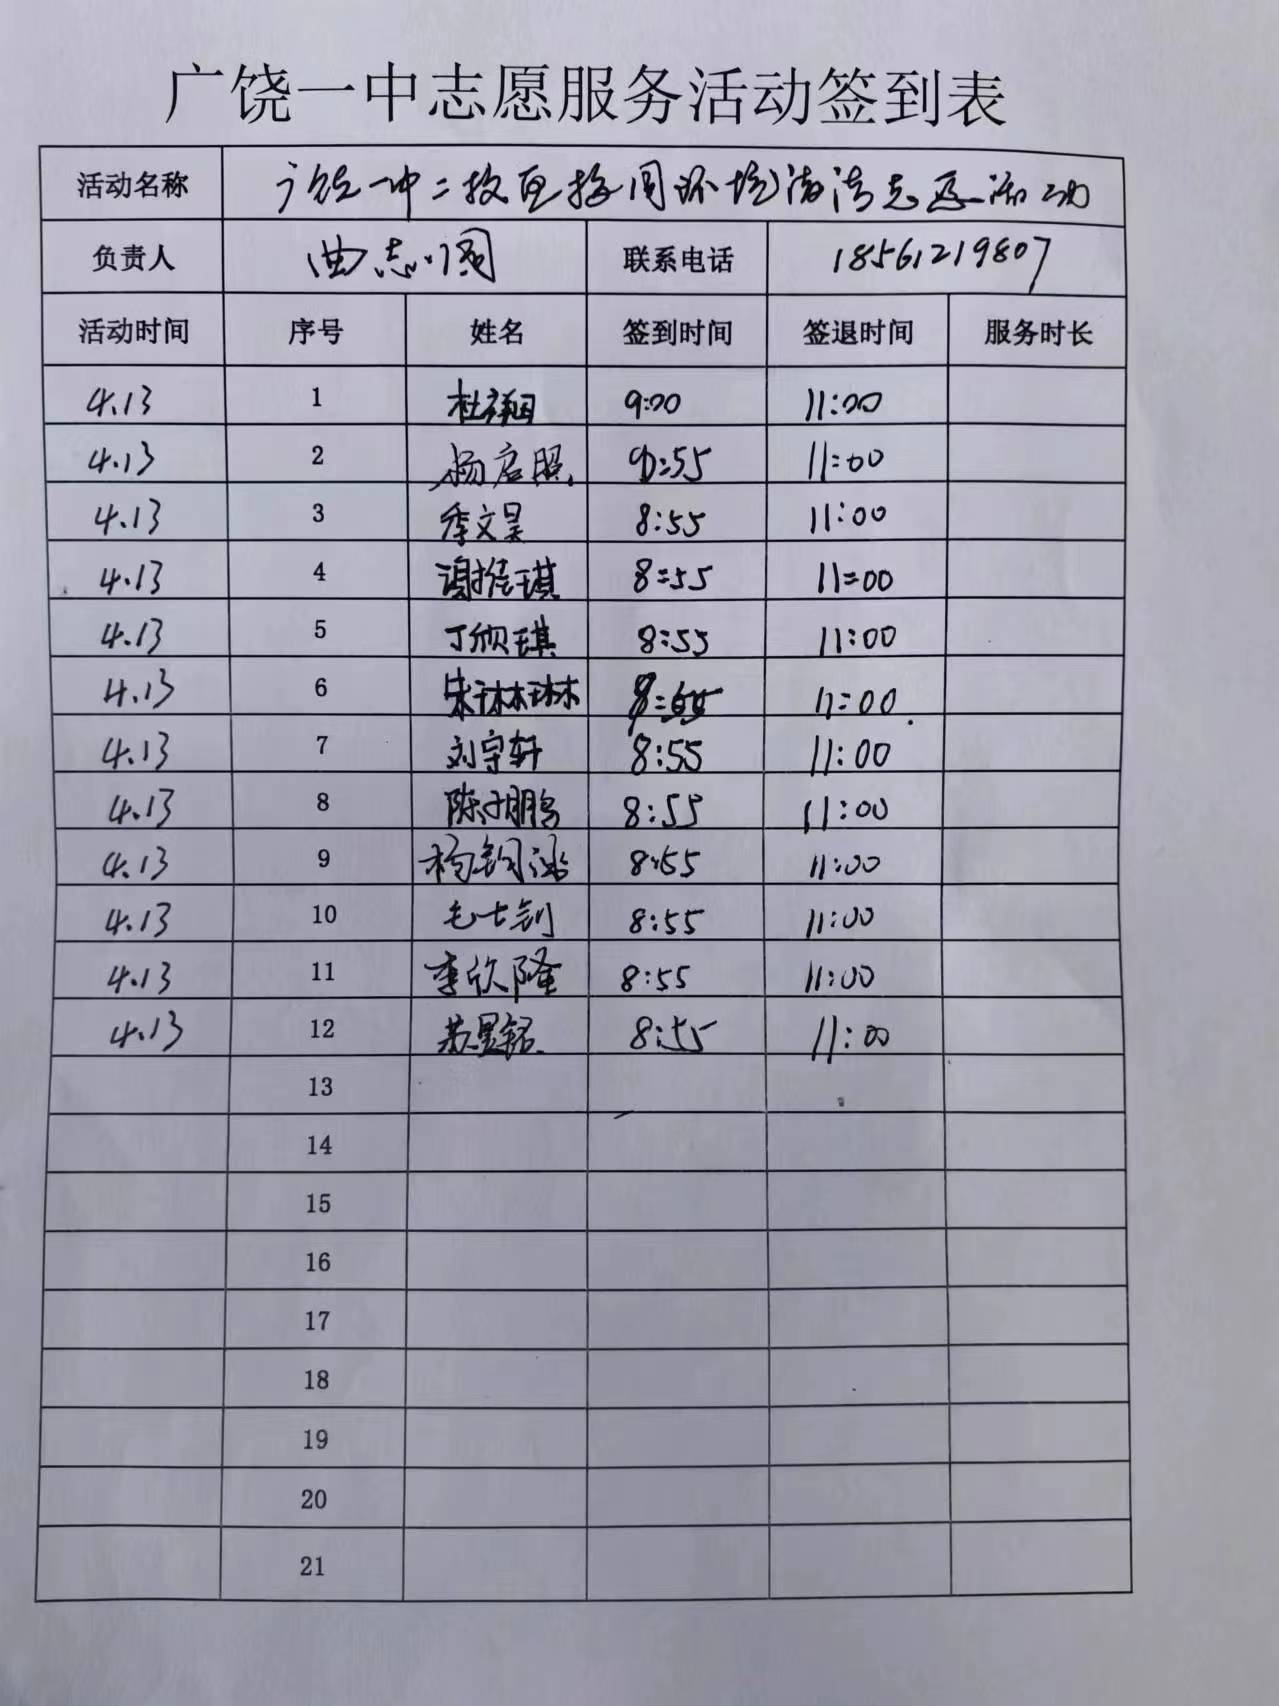 广饶一中志愿服务活动签到表
活动名称 广饶一中二校区校园环境清洁志愿活动
负责人 曲志国 联系电话 18561219807
活动时间 序号 姓名 签到时间 签退时间 服务时长
4.13 1 杜翔 9:00 11:00
4.13 2 杨启照 8:55 11:00
4.13 3 季文昊 8:55 11:00
4.13 4 谢佳琪 8:55 11:00
4.13 5 丁欣琪 8:55 11:00
4.13 6 宋琳琳 8:55 11:00
4.13 7 刘宇轩 8:55 11:00
4.13 8 陈子鹏 8:55 11:00
4.13 9 8:55 11:00
4.13 10 毛士钊 8:55 11:00
4.13 11 李欣隆 8:55 11:00
4.13 12 苏昱铭 8:55 11:00
13
14
15
16
17
18
19
20
21